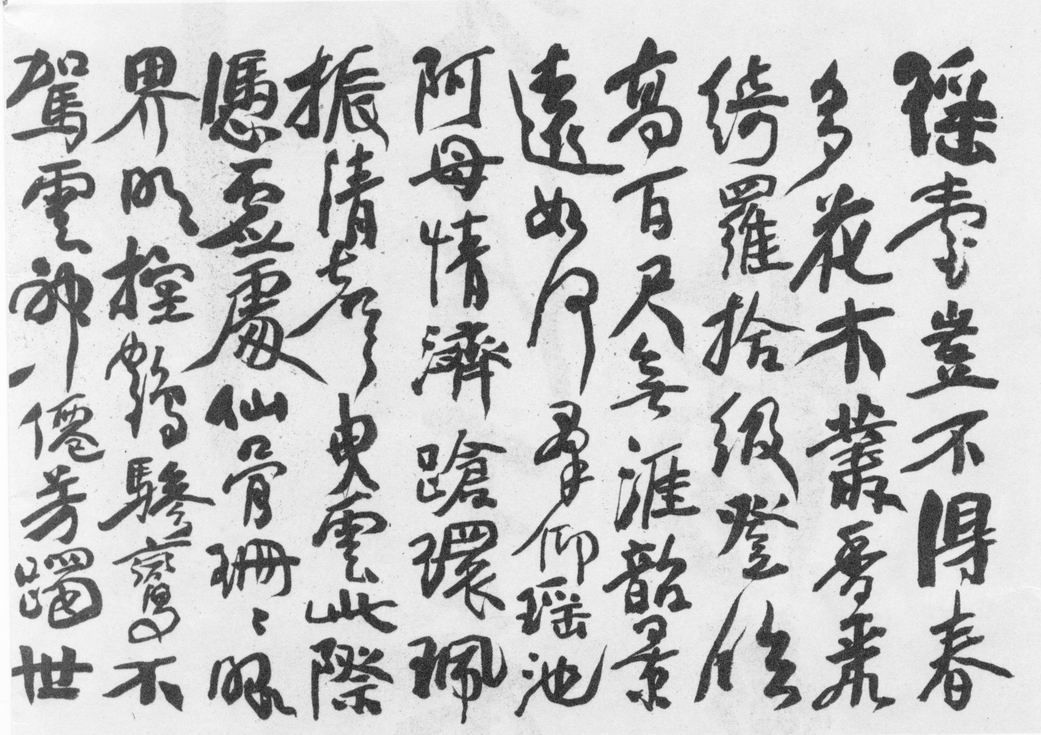 瑶臺豈不得春
多花木叢香
綺羅捨級登臨
高百尺無涯韶景
遠如何羣仰瑶池
阿母情濟蹌環珮
振清聲曳雲此際
憑虛處仙骨珊〻眼
界明控鶴驂鸞不
駕雲神僊芳躅世